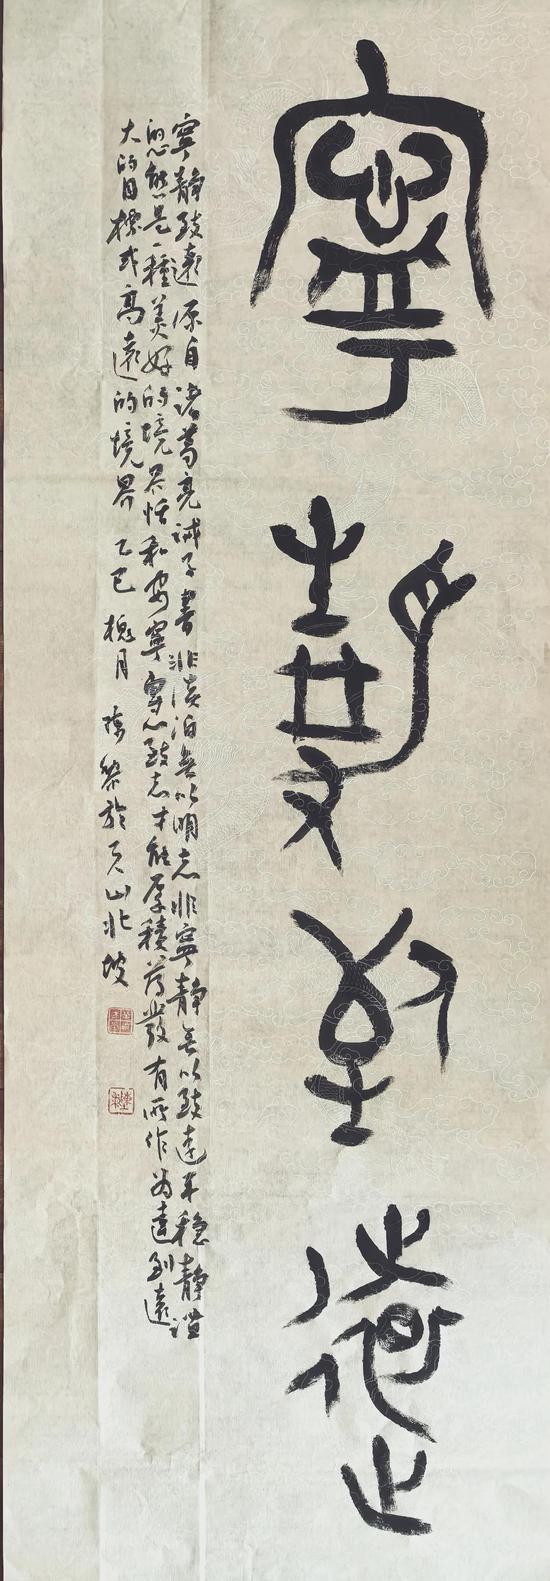 寧靜致遠
寧靜致遠源自諸葛亮誡子書非淡泊無以明志非寧靜無以致遠平穩靜謐
的心態是一種美好的境界恬和安寧專心致志才能厚積薄發有所作為達到遠
大的目標或高遠的境界乙巳槐月於天山北坡